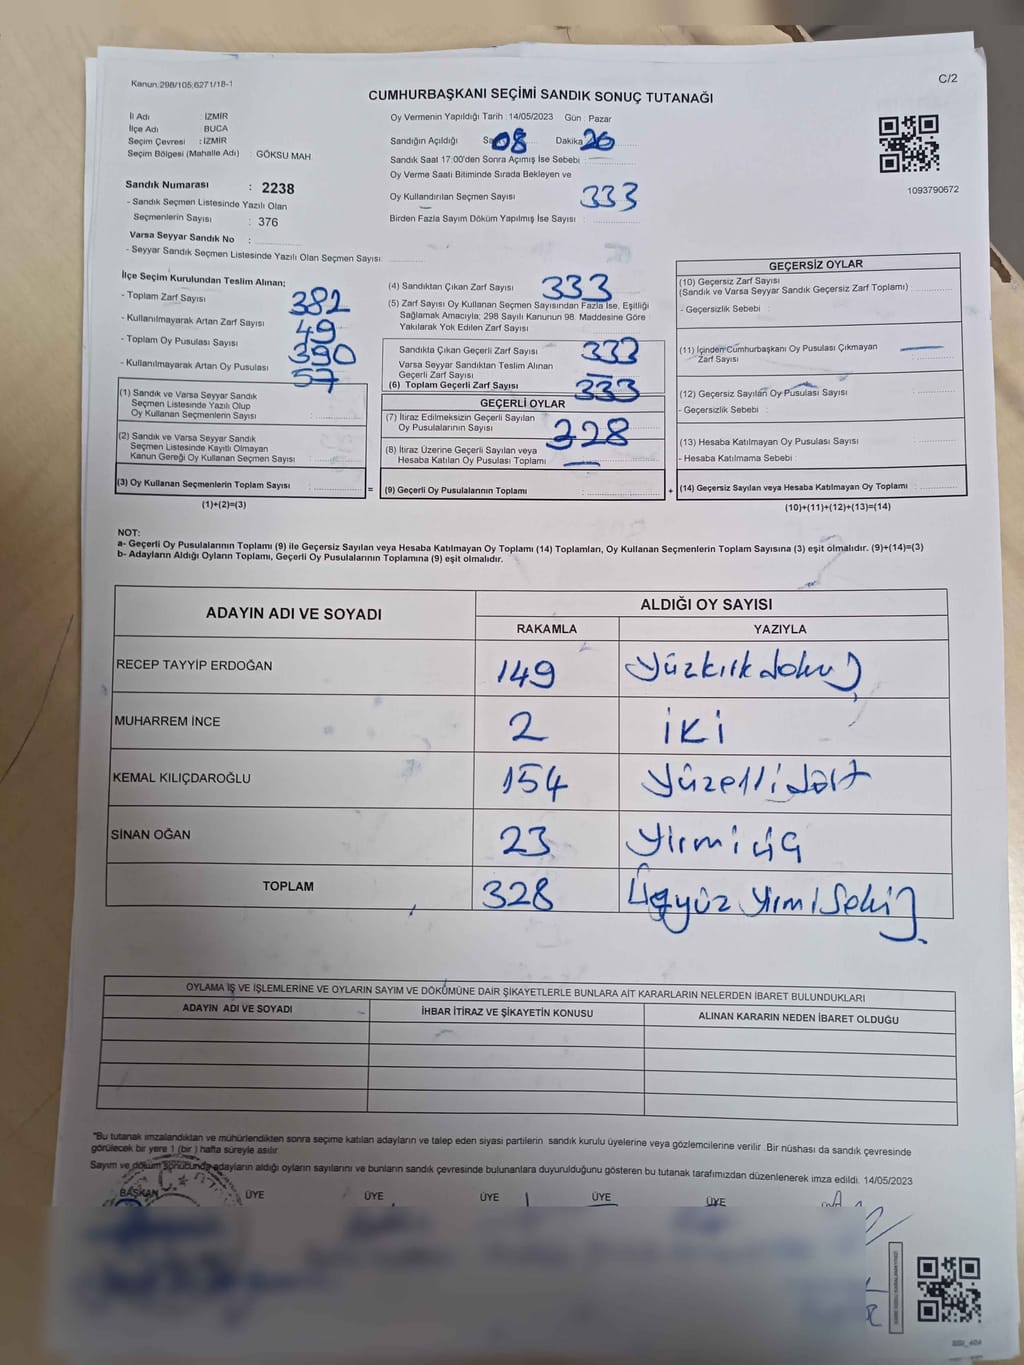 Kanun:298/105;6271/18-1
C/2
CUMHURBAŞKANI SEÇİMİ SANDIK SONUÇ TUTANAĞI
İl Adı : İZMİR
İlçe Adı : BUCA
Seçim Çevresi : İZMİR
Seçim Bölgesi (Mahalle Adı) : GÖKSU MAH
Sandık Numarası : 2238
- Sandık Seçmen Listesinde Yazılı Olan
Seçmenlerin Sayısı : 376
Varsa Seyyar Sandık No :
- Seyyar Sandık Seçmen Listesinde Yazılı Olan Seçmen Sayısı:
Oy Vermenin Yapıldığı Tarih : 14/05/2023 Gün : Pazar
Sandığın Açıldığı 08 Dakika 26
Sandık Saat 17:00'den Sonra Açımış İse Sebebi :
Oy Verme Saati Bitiminde Sırada Bekleyen ve
Oy Kullandırılan Seçmen Sayısı 333
Birden Fazla Sayım Döküm Yapılmış İse Sayısı :
1093790672
İlçe Seçim Kurulundan Teslim Alınan;
- Toplam Zarf Sayısı 382
- Kullanılmayarak Artan Zarf Sayısı 49
- Toplam Oy Pusulası Sayısı 390
- Kullanılmayarak Artan Oy Pusulası 57
(1) Sandık ve Varsa Seyyar Sandık
Seçmen Listesinde Yazılı Olup
Oy Kullanan Seçmenlerin Sayısı :
(2) Sandık ve Varsa Seyyar Sandık
Seçmen Listesinde Kayıtlı Olmayan
Kanun Gereği Oy Kullanan Seçmen Sayısı :
(3) Oy Kullanan Seçmenlerin Toplam Sayısı :
(1)+(2)=(3)
=
(4) Sandıktan Çıkan Zarf Sayısı 333
(5) Zarf Sayısı Oy Kullanan Seçmen Sayısından Fazla İse, Eşitliği
Sağlamak Amacıyla; 298 Sayılı Kanunun 98. Maddesine Göre
Yakılarak Yok Edilen Zarf Sayısı :
Sandıkta Çıkan Geçerli Zarf Sayısı 333
Varsa Seyyar Sandıktan Teslim Alınan
Geçerli Zarf Sayısı
(6) Toplam Geçerli Zarf Sayısı 333
GEÇERLİ OYLAR
(7) İtiraz Edilmeksizin Geçerli Sayılan
Oy Pusulalarının Sayısı 328
(8) İtiraz Üzerine Geçerli Sayılan veya
Hesaba Katılan Oy Pusulası Toplamı
(9) Geçerli Oy Pusulalarının Toplamı :
+
GEÇERSİZ OYLAR
(10) Geçersiz Zarf Sayısı
(Sandık ve Varsa Seyyar Sandık Geçersiz Zarf Toplamı) :
- Geçersizlik Sebebi :
(11) İçinden Cumhurbaşkanı Oy Pusulası Çıkmayan
Zarf Sayısı :
(12) Geçersiz Sayılan Oy Pusulası Sayısı :
- Geçersizlik Sebebi :
(13) Hesaba Katılmayan Oy Pusulası Sayısı :
- Hesaba Katılmama Sebebi :
(14) Geçersiz Sayılan veya Hesaba Katılmayan Oy Toplamı :
(10)+(11)+(12)+(13)=(14)
NOT:
a- Geçerli Oy Pusulalarının Toplamı (9) ile Geçersiz Sayılan veya Hesaba Katılmayan Oy Toplamı (14) Toplamları, Oy Kullanan Seçmenlerin Toplam Sayısına (3) eşit olmalıdır. (9)+(14)=(3)
b- Adayların Aldığı Oyların Toplamı, Geçerli Oy Pusulalarının Toplamına (9) eşit olmalıdır.
ADAYIN ADI VE SOYADI ALDIĞI OY SAYISI
RAKAMLA YAZIYLA
RECEP TAYYİP ERDOĞAN 149 Yüzkırkdokuz
MUHARREM İNCE 2 İKİ
KEMAL KILIÇDAROĞLU 154 Yüzellidört
SİNAN OĞAN 23 Yirmi üç
TOPLAM 328 Üçyüz Yirmi Sekiz.
OYLAMA İŞ VE İŞLEMLERİNE VE OYLARIN SAYIM VE DÖKÜMÜNE DAİR ŞİKAYETLERLE BUNLARA AİT KARARLARIN NELERDEN İBARET BULUNDUKLARI
ADAYIN ADI VE SOYADI İHBAR İTİRAZ VE ŞİKAYETİN KONUSU ALINAN KARARIN NEDEN İBARET OLDUĞU
"Bu tutanak imzalandıktan ve mühürlendikten sonra seçime katılan adayların ve talep eden siyasi partilerin sandık kurulu üyelerine veya gözlemcilerine verilir .Bir nüshası da sandık çevresinde
görülecek bir yere 1 (bir ) hafta süreyle asılır
Sayım ve döküm sonucunda adayların aldığı oyların sayılarını ve bunların sandık çevresinde bulunanlara duyurulduğunu gösteren bu tutanak tarafımızdan düzenlenerek imza edildi. 14/05/2023
BAŞKAN ÜYE ÜYE ÜYE ÜYE ÜYE